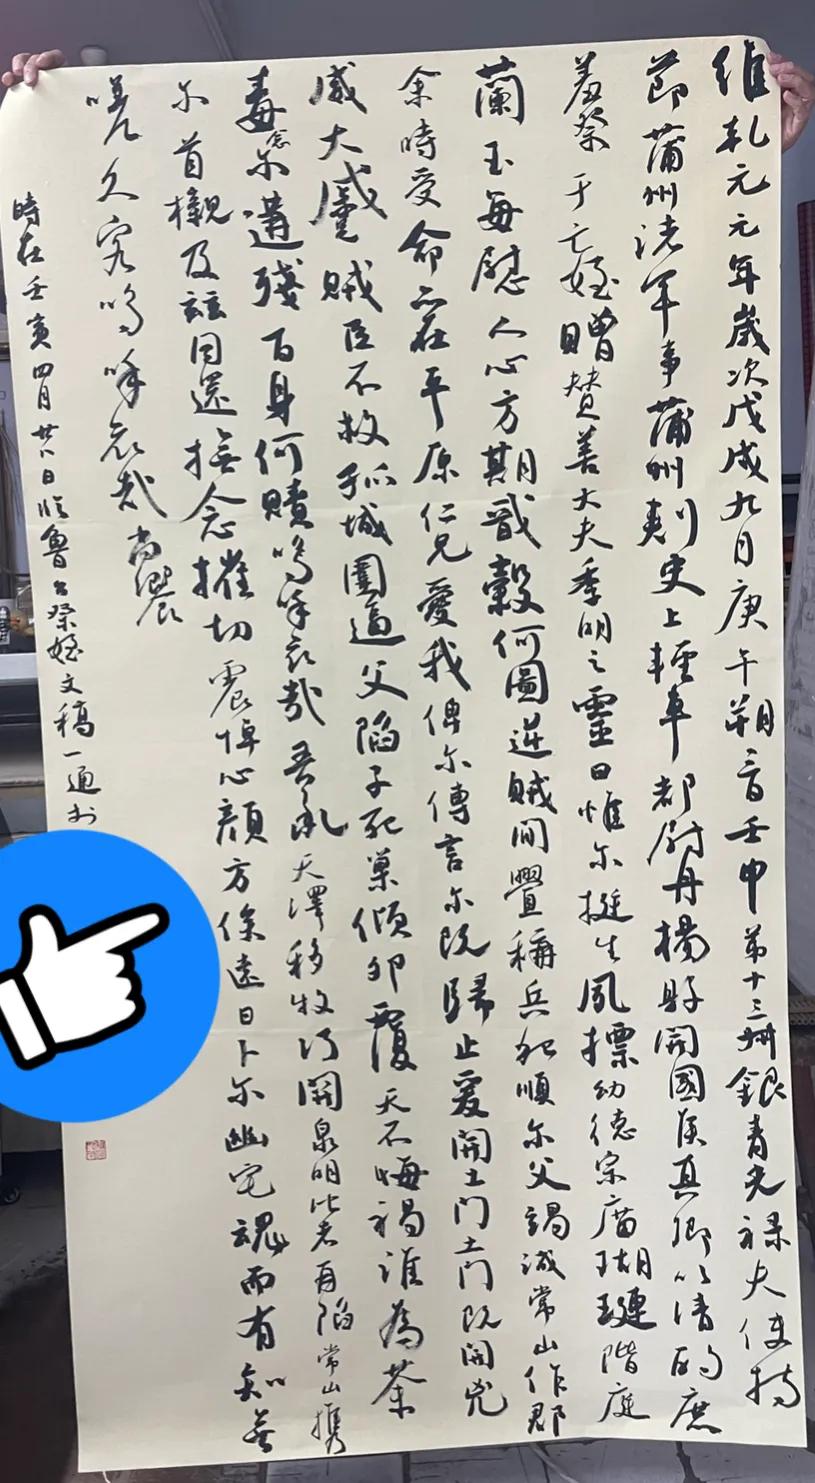 維乾元元年歲次戊戌九月庚午朔三日壬申第十三叔銀青光禄夫使持
節蒲州諸軍事蒲州刺史上輕車都尉丹楊縣開國侯真卿以清酌庶
羞祭于亡姪贈贊善大夫季明之靈曰惟尔挺生夙標幼德宗廟瑚璉階庭
蘭玉每慰人心方期戩穀何圖逆賊間舋稱兵犯順尔父竭誠常山作郡
余時受命亦在平原仁兄愛我俾尔傳言尔既歸止爰開土門土門既開兇
威大蹙賊臣不救孤城圍逼父陷子死巢傾卵覆天不悔禍誰為荼
毒念尔遘殘百身何贖嗚呼哀哉吾承天澤移牧河關泉明比者再陷常山攜
尔首櫬及兹同還撫念摧切震悼心顏方俟遠日卜尔幽宅魂而有知無
嗟久客嗚呼哀哉尚饗
時在壬寅四月廿八日臨魯公祭姪文稿一通於